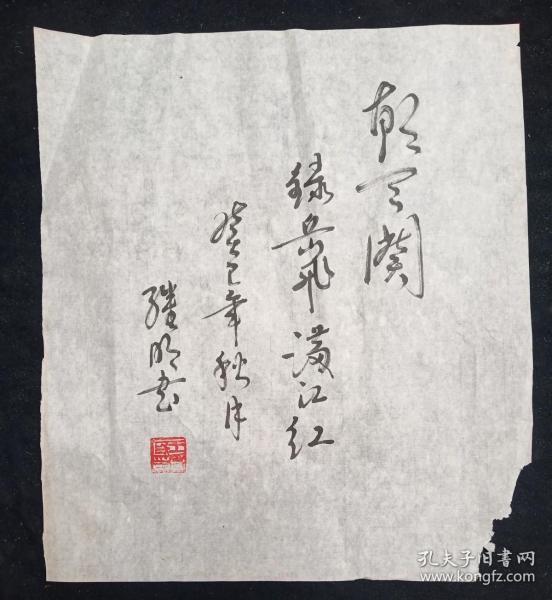 朝天阙
录岳飞满江红
癸巳年秋月
继明书
孔夫子旧书网
www.kongfz.com